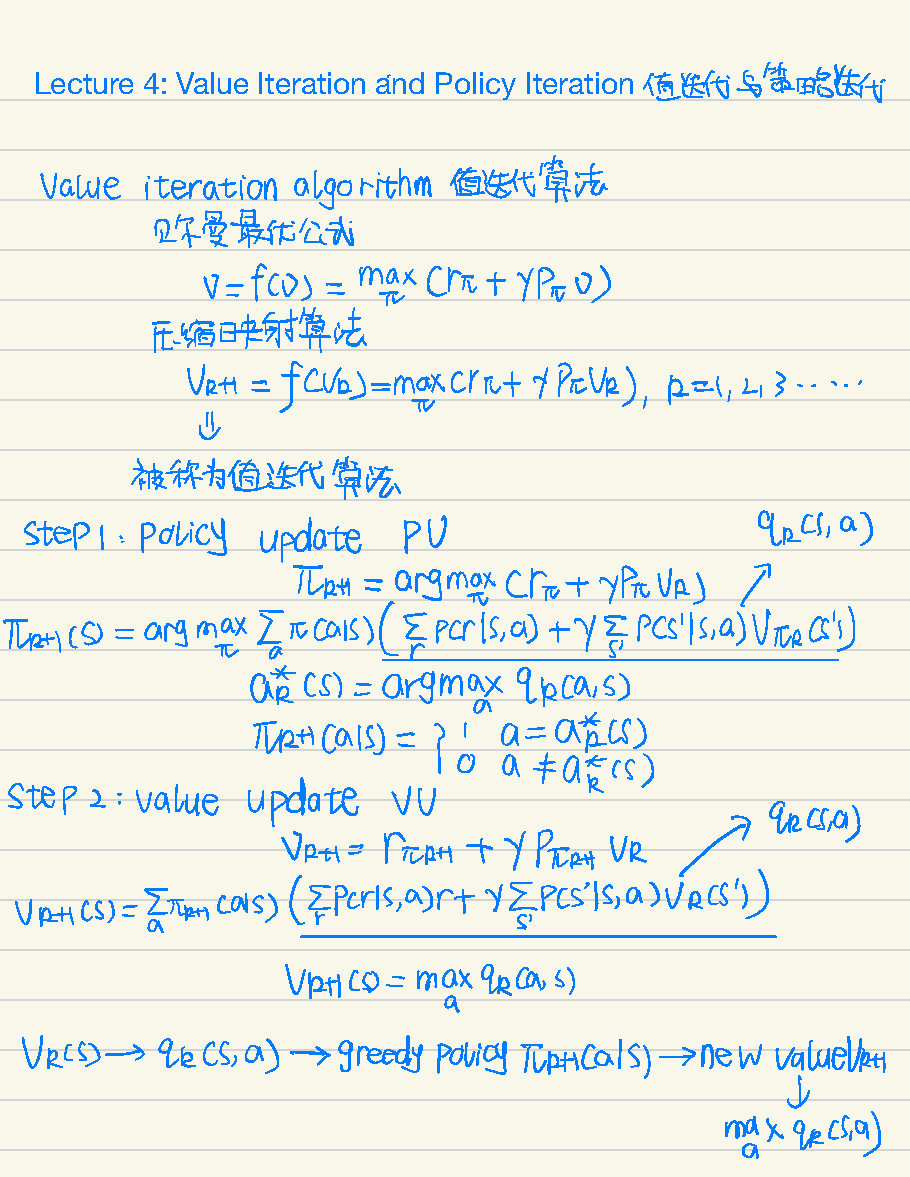 Lecture 4: Value Iteration and Policy Iteration 值迭代与策略迭代
Value iteration algorithm 值迭代算法
贝尔曼最优公式
v = f(v) = max_π (r_π + γP_π v)
压缩映射算法
v_{k+1} = f(v_k) = max_π (r_π + γP_π v_k), k = 1, 2, 3 ······
⇓
被称为值迭代算法
Step 1: policy update PU
q_k(s, a)
π_{k+1} = argmax_π (r_π + γP_π v_k)
π_{k+1}(s) = arg max_π Σ_a π(a|s) (Σ_r p(r|s,a) + γ Σ_{s'} p(s'|s,a) v_{π_k}(s'))
a*_k(s) = argmax_a q_k(a,s)
π_{k+1}(a|s) = { 1 a = a*_k(s)
0 a ≠ a*_k(s)
Step 2: value update VU
q_k(s,a)
v_{k+1} = r_{π_{k+1}} + γP_{π_{k+1}} v_k
v_{k+1}(s) = Σ_a π_{k+1}(a|s) (Σ_r p(r|s,a)r + γ Σ_{s'} p(s'|s,a) v_k(s'))
v_{k+1}(s) = max_a q_k(a,s)
v_k(s) → q_k(s,a) → greedy policy π_{k+1}(a|s) → new value v_{k+1}
↓
max_a q_k(s,a)